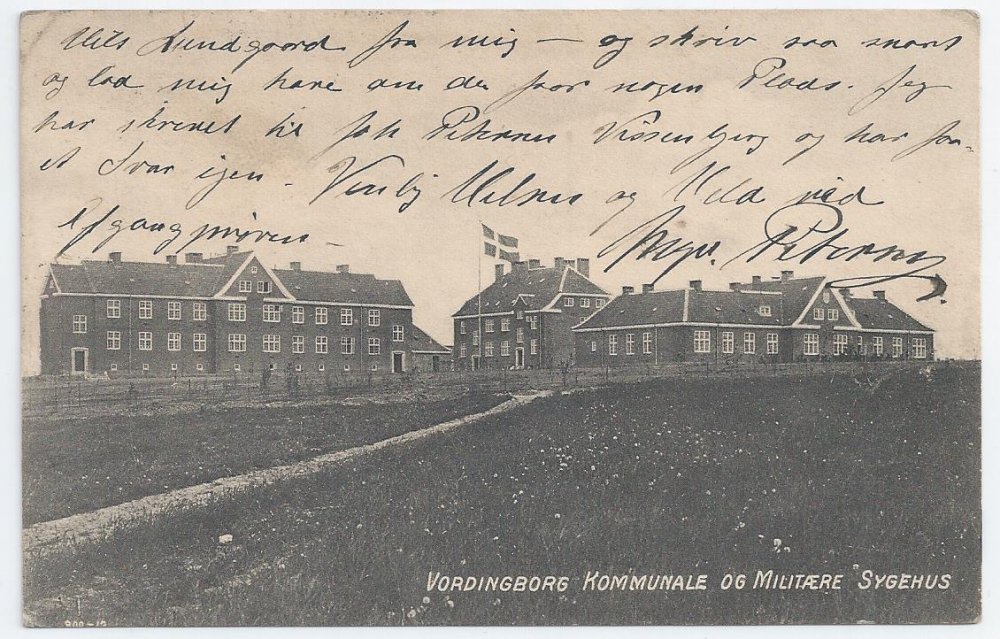 Hils Lundgaard fra mig — og skriv saa snart
og lad mig have om du faar nogen Plads. Jeg
har skrevet til Petersen Vissenbjerg og har faa-
et Svar igen. Venlig Hilsen og Held ved
Afgangsprøven —
Petersen
VORDINGBORG KOMMUNALE OG MILITÆRE SYGEHUS